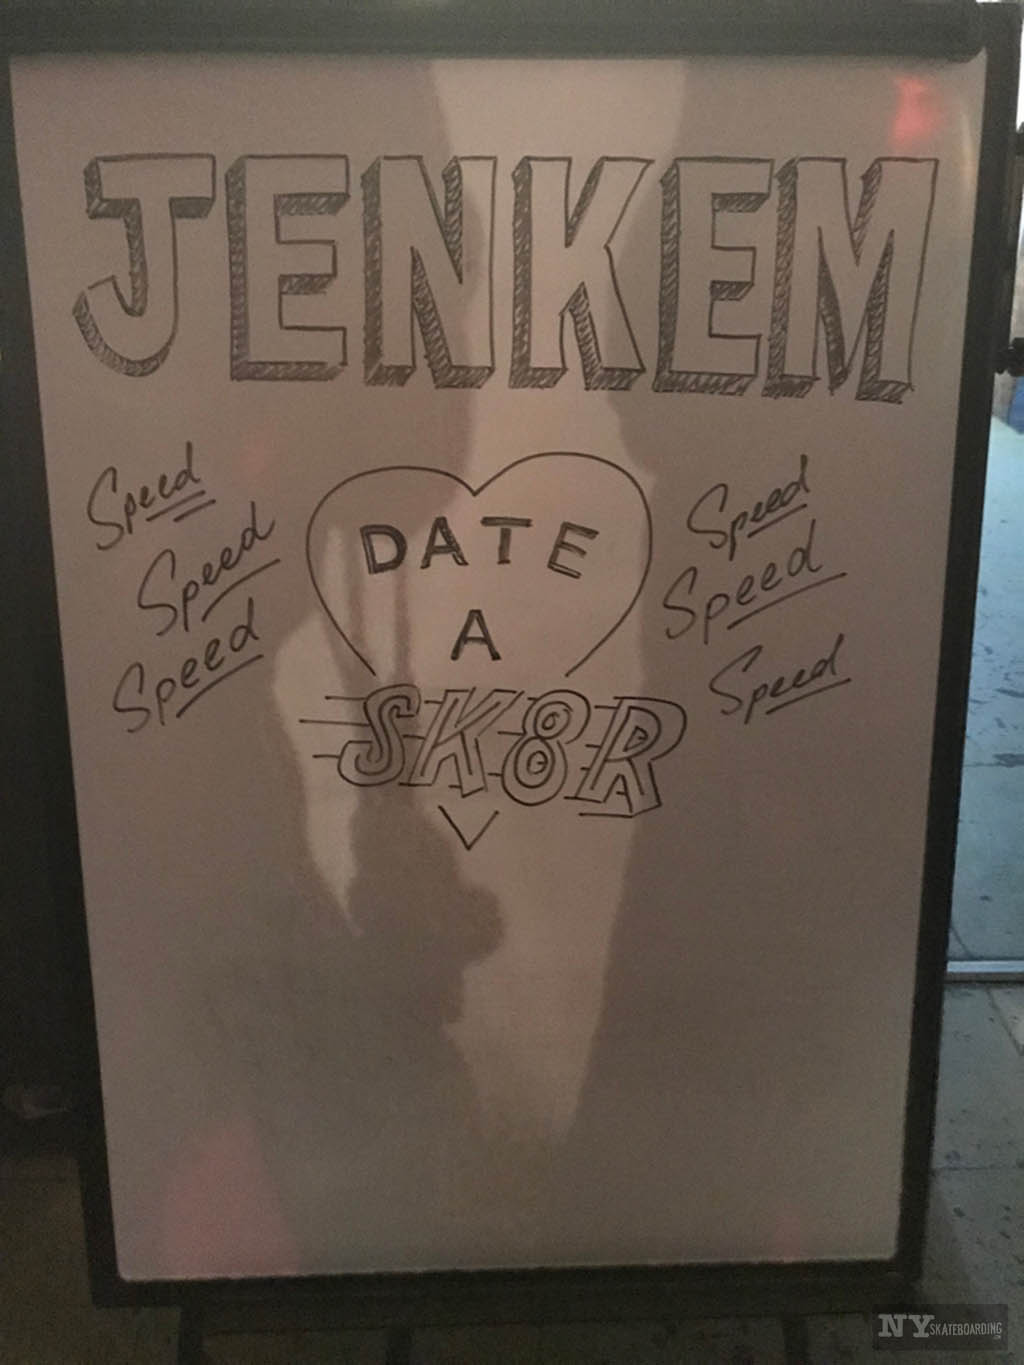 JENKEM
Speed
Speed
Speed
DATE
A
SK8R
Speed
Speed
Speed
NY SKATEBOARDING